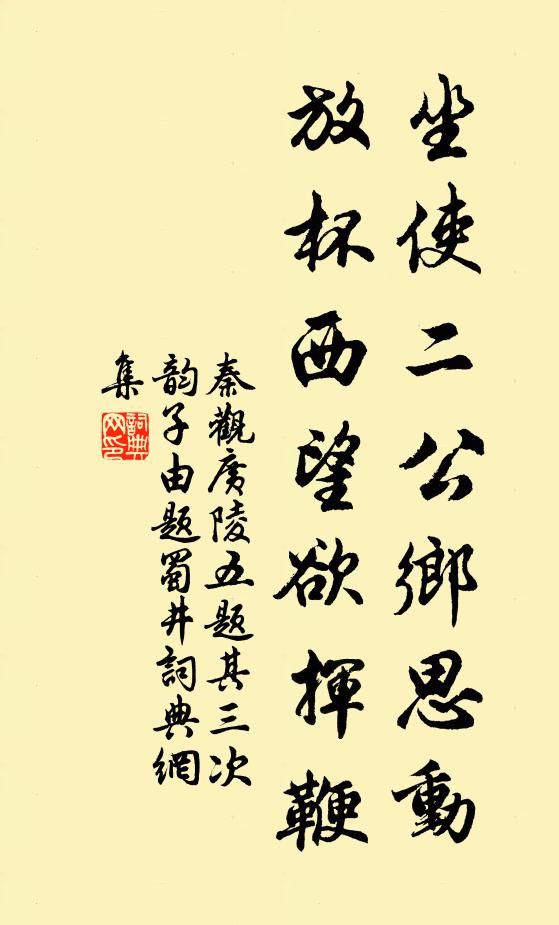 坐使二公鄉思動
放杯西望欲揮鞭
秦觀廣陵五題其三次
韵子由題蜀井詞典網
集
詞典
网印